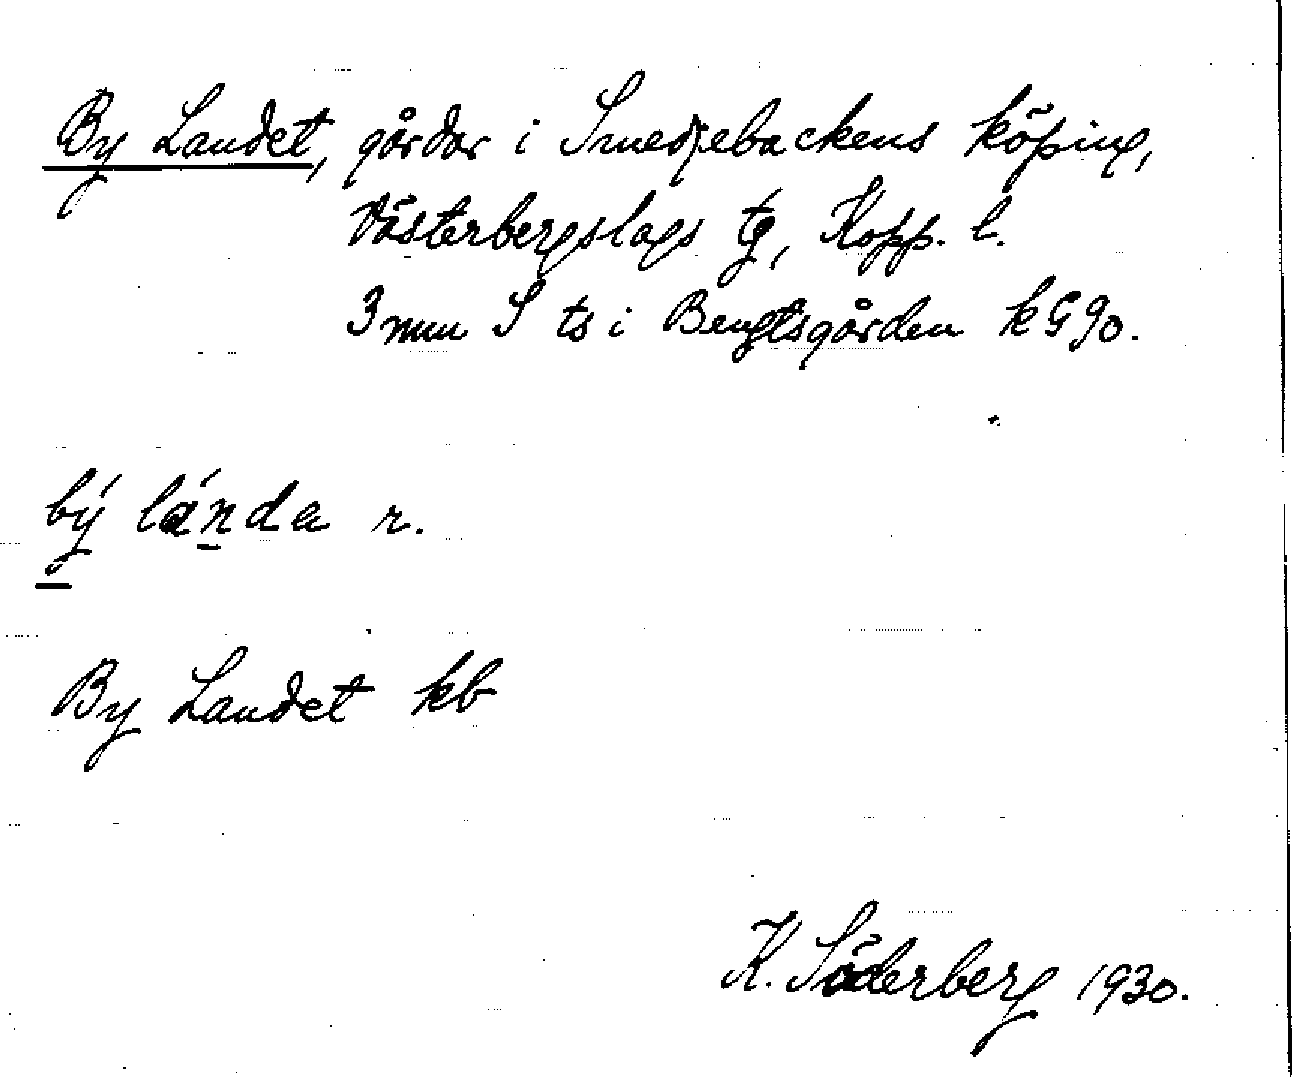 By Landet, gårdar i Smedjebackens köping,
Västerbergslags tg, Kopp. l.
3 mm S ts i Bengtsgården kG 90.
bý lánda r.
By Landet kb
K. Söderberg 1930.